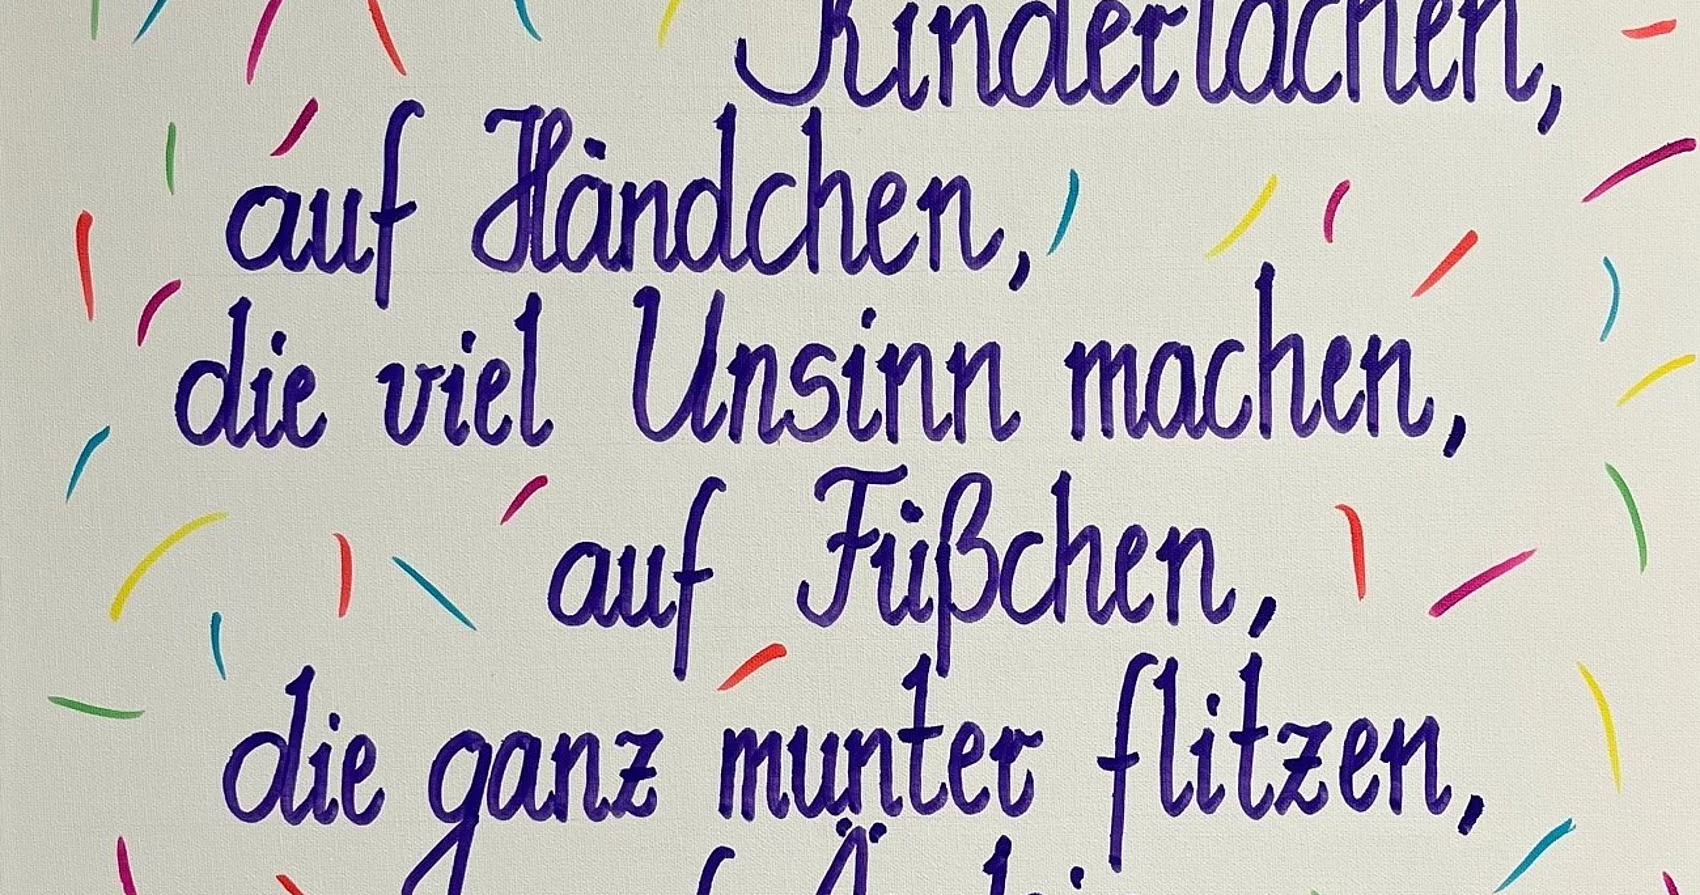 Kinderlachen,
auf Händchen,
die viel Unsinn machen,
auf Füßchen,
die ganz munter flitzen,